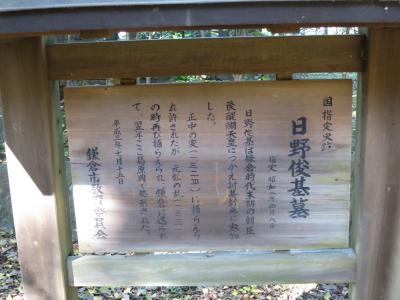 国指定史跡
日野俊基墓
指定 昭和二年四月八日
日野俊基は鎌倉時代末期の朝臣
後醍醐天皇につかえ討幕計画に参加
した。
正中の変(一三二四)に捕らえら
れ許されたが 元弘の乱(一三三一)
の時再び捕らえられ 鎌倉に送られ
て、翌年ここ葛原岡で処刑された。
鎌倉市教育委員会